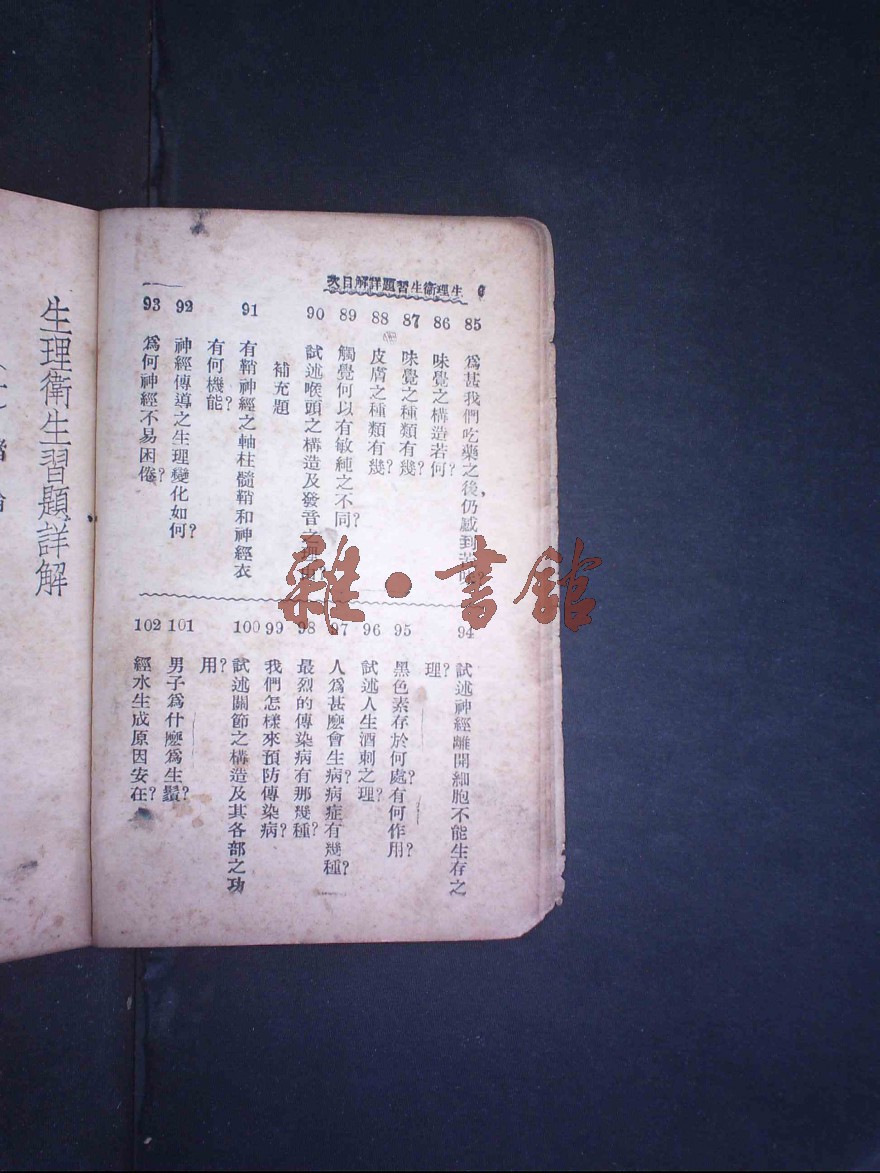 6 生理衛生習題詳解目次
85 爲甚我們吃藥之後,仍感到
86 味覺之構造若何?
87 味覺之種類有幾?
88 皮膚之種類有幾?
89 觸覺何以有敏純之不同?
90 試述喉頭之構造及發音之
補充題
91 有鞘神經之軸柱髓鞘和神經衣
有何機能?
92 神經傳導之生理變化如何?
93 爲何神經不易困倦?
94 試述神經離開細胞不能生存之
理?
95 黑色素存於何處?有何作用?
96 試述人生酒刺之理?
97 人爲甚麽會生病?病症有幾種?
98 最烈的傳染病有那幾種?
99 我們怎樣來預防傳染病?
100 試述關節之構造及其各部之功
用?
101 男子爲什麽爲生鬚?
102 經水生成原因安在?
生理衛生習題詳解
雜·書館